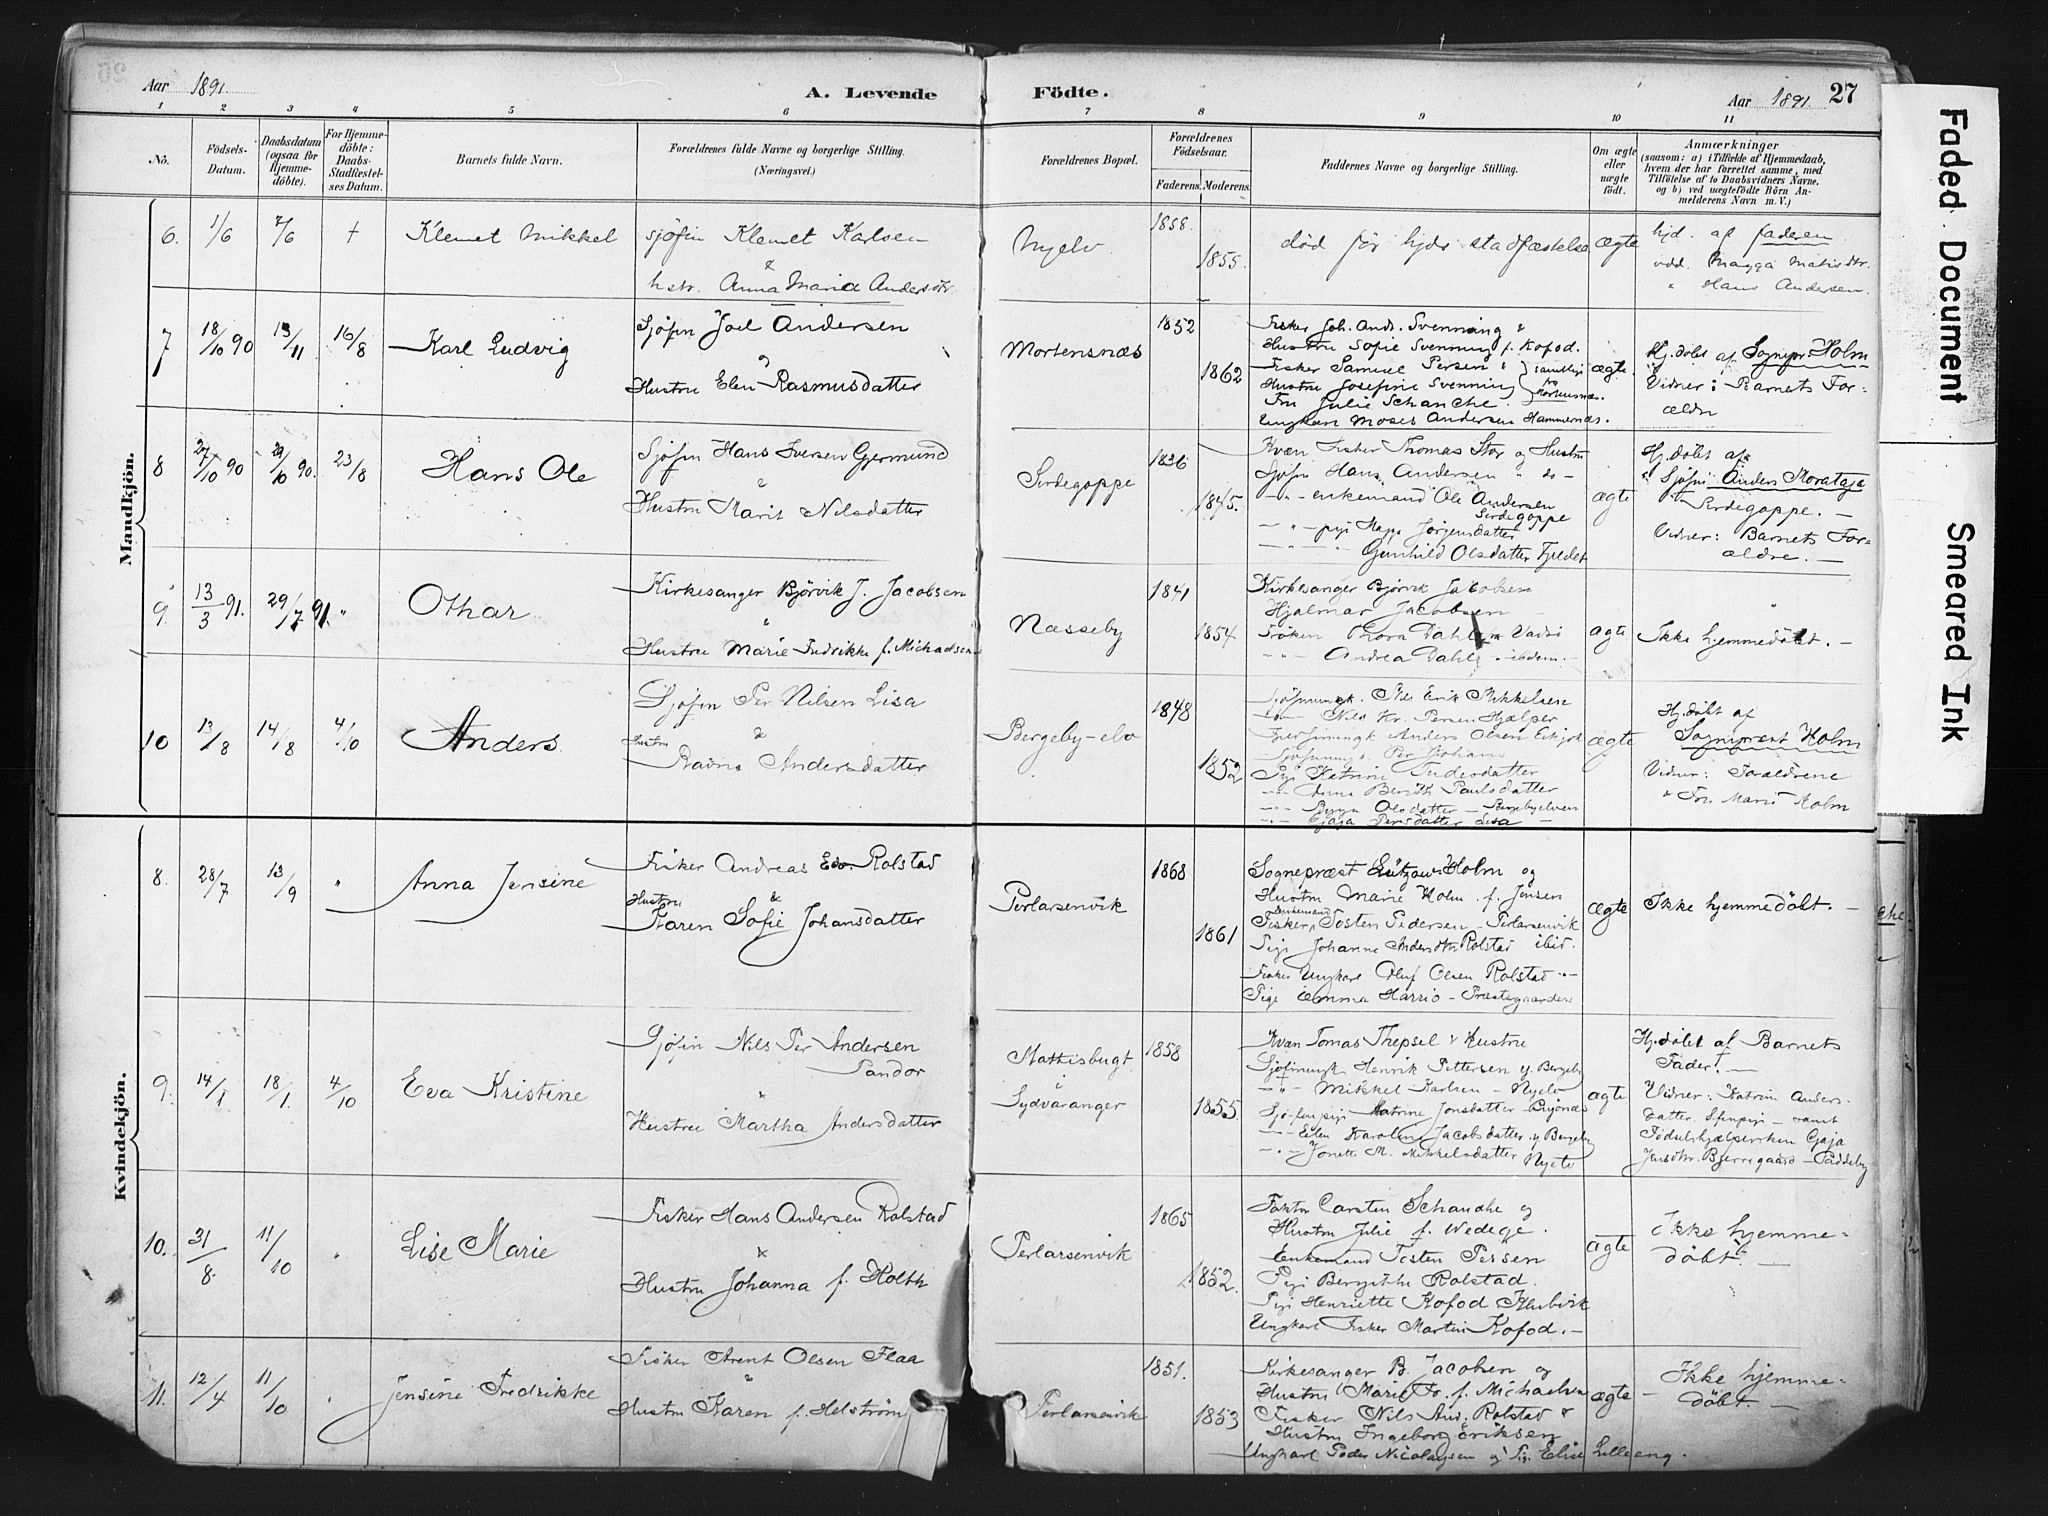 Aar 1891.
A. Levende Födte.
Aar 1891.
27
1 2 3 4 5 6 7 8 9 10 11
No.
Födsels-Datum.
Daabsdatum (ogsaa for Hjemme-döbte).
For Hjemme-döbte: Daabs-Stadfæstel-ses Datum.
Barnets fulde Navn.
Forældrenes fulde Navne og borgerlige Stilling.
(Næringsvei.)
Forældrenes Bopæl.
Forældrenes Födselsaar.
Faderens.
Moderens.
Faddernes Navne og borgerlige Stilling.
Om ægte eller uægte födt.
Anmærkninger
(saasom: a) i Tilfælde af Hjemmedaab,
hvem der har forrettet samme, med
Tilföielse af to Daabsvidners Navne,
og b) ved uægtefödte Börn An-
melderens Navn m. V.)
Mandkjön.
6. 1/6 7/6 + Klemet Mikkel
Sjøfin Klemet Karlsen
&
hstr. Anna Maria Andersdtr.
Nyelv
1858.
1855.
død før hjds stadfæstelse
ægte
hjd. af faderen.
vdd. Magga Matisdtr.
" Hans Andersen.
7 18/10 90 13/11 16/8 Karl Ludvig
Sjøfin Joel Andersen
&
Hustru Elen Rasmusdatter
Mortensnæs
1852
1862
Fisker Joh. And. Svenning &
Hustru Sofie Svenning f. Kofod.
Fisker Samuel Persen &
Hustru Josefine Svenning
samtlige fra Mortensnæs.
Fru Julie Schanche.
Ungkarl Moses Andersen Hammernæs.
ægte.
Hj.døbt af Sognepr. Holm
Vidner: Barnets For-
ældre
8 27/10 90 29/10 90. 23/8 Hans Ole
Sjøfin Hans Iversen Germund
&
Hustru Marit Nilsdatter
Sirdegoppe
1836
1845.
Kvæn Fisker Thomas Stor og Hustru
Sjøfin Hans Andersen " do -
-"- enkemand Ole Andersen
Sirdegoppe
-"- pige Magga Jørgensdatter
-"- Gunhild Olsdatter Fjeldet
ægte
Hj.døbt af
Sjøfin Anders
Sirdegoppe. -
Vidner: Barnets For-
ældre. -
9. 13/3 91. 29/7 91. " Othar
Kirkesanger Bjørvik J. Jacobsen
&
Hustru Marie Fredrikke f. Michaelsen
Næsseby
1841
1854
Kirkesanger Bjørvik Jacobsen
Hjalmar Jacobsen
Frøken Thora Dahl Vadsø
-"- Andrea Dahl - ibdem. -
ægte
Ikke hjemmedøbt. -
10 13/8 14/8 4/10 Anders
Sjøfin Per Nilsen Lisa
&
Hustru
Ravna Andersdatter
Bergeby-elv
1848
1852
Sjøfinungk. Nils Erik Mikkelsen
-"- Nils Kr. Persen Hjælper
Anders Olsen
Sjøfinungk. Per Johan
Pige Katrine
-"- Anna Berith Paulsdatter
-"- Olsdatter - Bergebyelven
-"- Gjaja Persdatter Lisa -
ægte
Hj.døbt af
Sogneprest Holm
Vidner: Forældrene
& Fru Marie Holm
Kvindekjön.
8. 28/7 13/9 " Anna Jensine
Fisker Andreas Edv. Rolstad
&
Hustru
Karen Sofie Johansdatter
Perlarsenvik
1868
1861
Sogneprest Lützow-Holm og
Hustru Marie Holm f. Jensen
Enkemand
Fisker Tosten Pedersen - Perlarsenvik
Pige Johanne Andersdtr Rolstad ibid.
Fisker Ungkarl Oluf Olsen Rolstad "-
Pige Emma Harrio - Præstegaarden
ægte
Ikke hjemmedøbt. -
9. 14/1 18/1 4/10 Eva Kristine
Sjøfin Nils Per Andersen
Pandor
&
Hustru Martha Andersdatter
Mattisbugt
i
Sydvaranger
1858
1855
Kvæn Tomas Thepsel & Hustru
Sjøfinungk Henrik Pettersen y. Bergeby
-"- Mikkel Karlsen - Nyelv
Sjøfinpige Katrine Jonsdatter
-"- Elen Karoline Jacobsdatter y Bergeby
-"- Jonette M. Mikkelsdatter Nyelv
ægte
Hj.døbt af Barnets
Fader. -
Vidner: Katrin Anders-
datter. Sfinpige - samt
Fødselshjælpersken Gjaja
Jensdtr. Bjerregaard - Paddeby
10. 31/8. 11/10 " Lise Marie
Fisker Hans Andersen Rolstad
&
Hustru Johanna f. Holth
Perlarsenvik
1865
1852.
Faktor Carsten Schanche og
Hustru Julie f. Wedege.
Enkemand Tosten Persen
Pige Bergitthe Rolstad.
Pige Henriette Kofod Klubvik
Ungkarl Fisker Martin Kofod. -
ægte
Ikke hjemme-
døbt. -
11. 12/4 11/10 " Jensine Fredrikke
Fisker Arent Olsen Flaa
&
Hustru Karen f. Helstrøm
Perlarsenvik
1851.
1853
Kirkesanger B. Jacobsen og
Hustru Marie Fr. f. Michaelsen
Fisker Nils And. Rolstad &
Hustru Ingeborg Eriksen
Ungkarl Peder Nicolaysen og Pige Elise Lilleeng.
ægte -
Ikke hjemme-
døbt. -
Faded Document
Smeared Ink